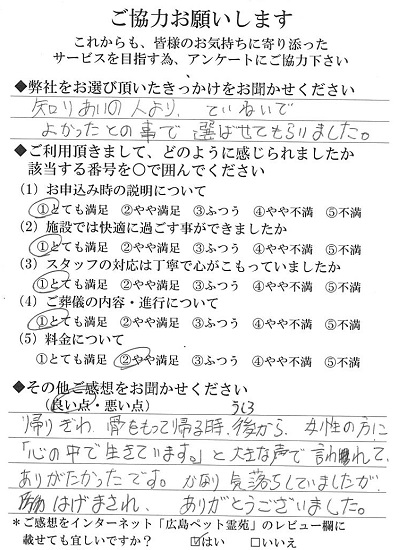 ご協力お願いします
これからも、皆様のお気持ちに寄り添った
サービスを目指す為、アンケートにご協力下さい
◆弊社をお選び頂いたきっかけをお聞かせください
知りあいの人より、ていねいで
よかったとの事で選ばせてもらいました。
◆ご利用頂きまして、どのように感じられましたか
該当する番号を○で囲んでください
(1) お申込み時の説明について
①とても満足 ②やや満足 ③ふつう ④やや不満 ⑤不満
(2) 施設では快適に過ごす事ができましたか
①とても満足 ②やや満足 ③ふつう ④やや不満 ⑤不満
(3) スタッフの対応は丁寧で心がこもっていましたか
①とても満足 ②やや満足 ③ふつう ④やや不満 ⑤不満
(4) ご葬儀の内容・進行について
①とても満足 ②やや満足 ③ふつう ④やや不満 ⑤不満
(5) 料金について
①とても満足 ②やや満足 ③ふつう ④やや不満 ⑤不満
◆その他ご感想をお聞かせください
(良い点・悪い点)
うしろ
帰りぎわ、骨をもって帰る時、後から、女性の方に
「心の中で生きています。」と大きな声で言われて、
ありがたかったです。かなり気落ちしていましたが、
はげまされ、ありがとうございました。
*ご感想をインターネット「広島ペット霊苑」のレビュー欄に
載せても宜しいですか? ☑はい □いいえ